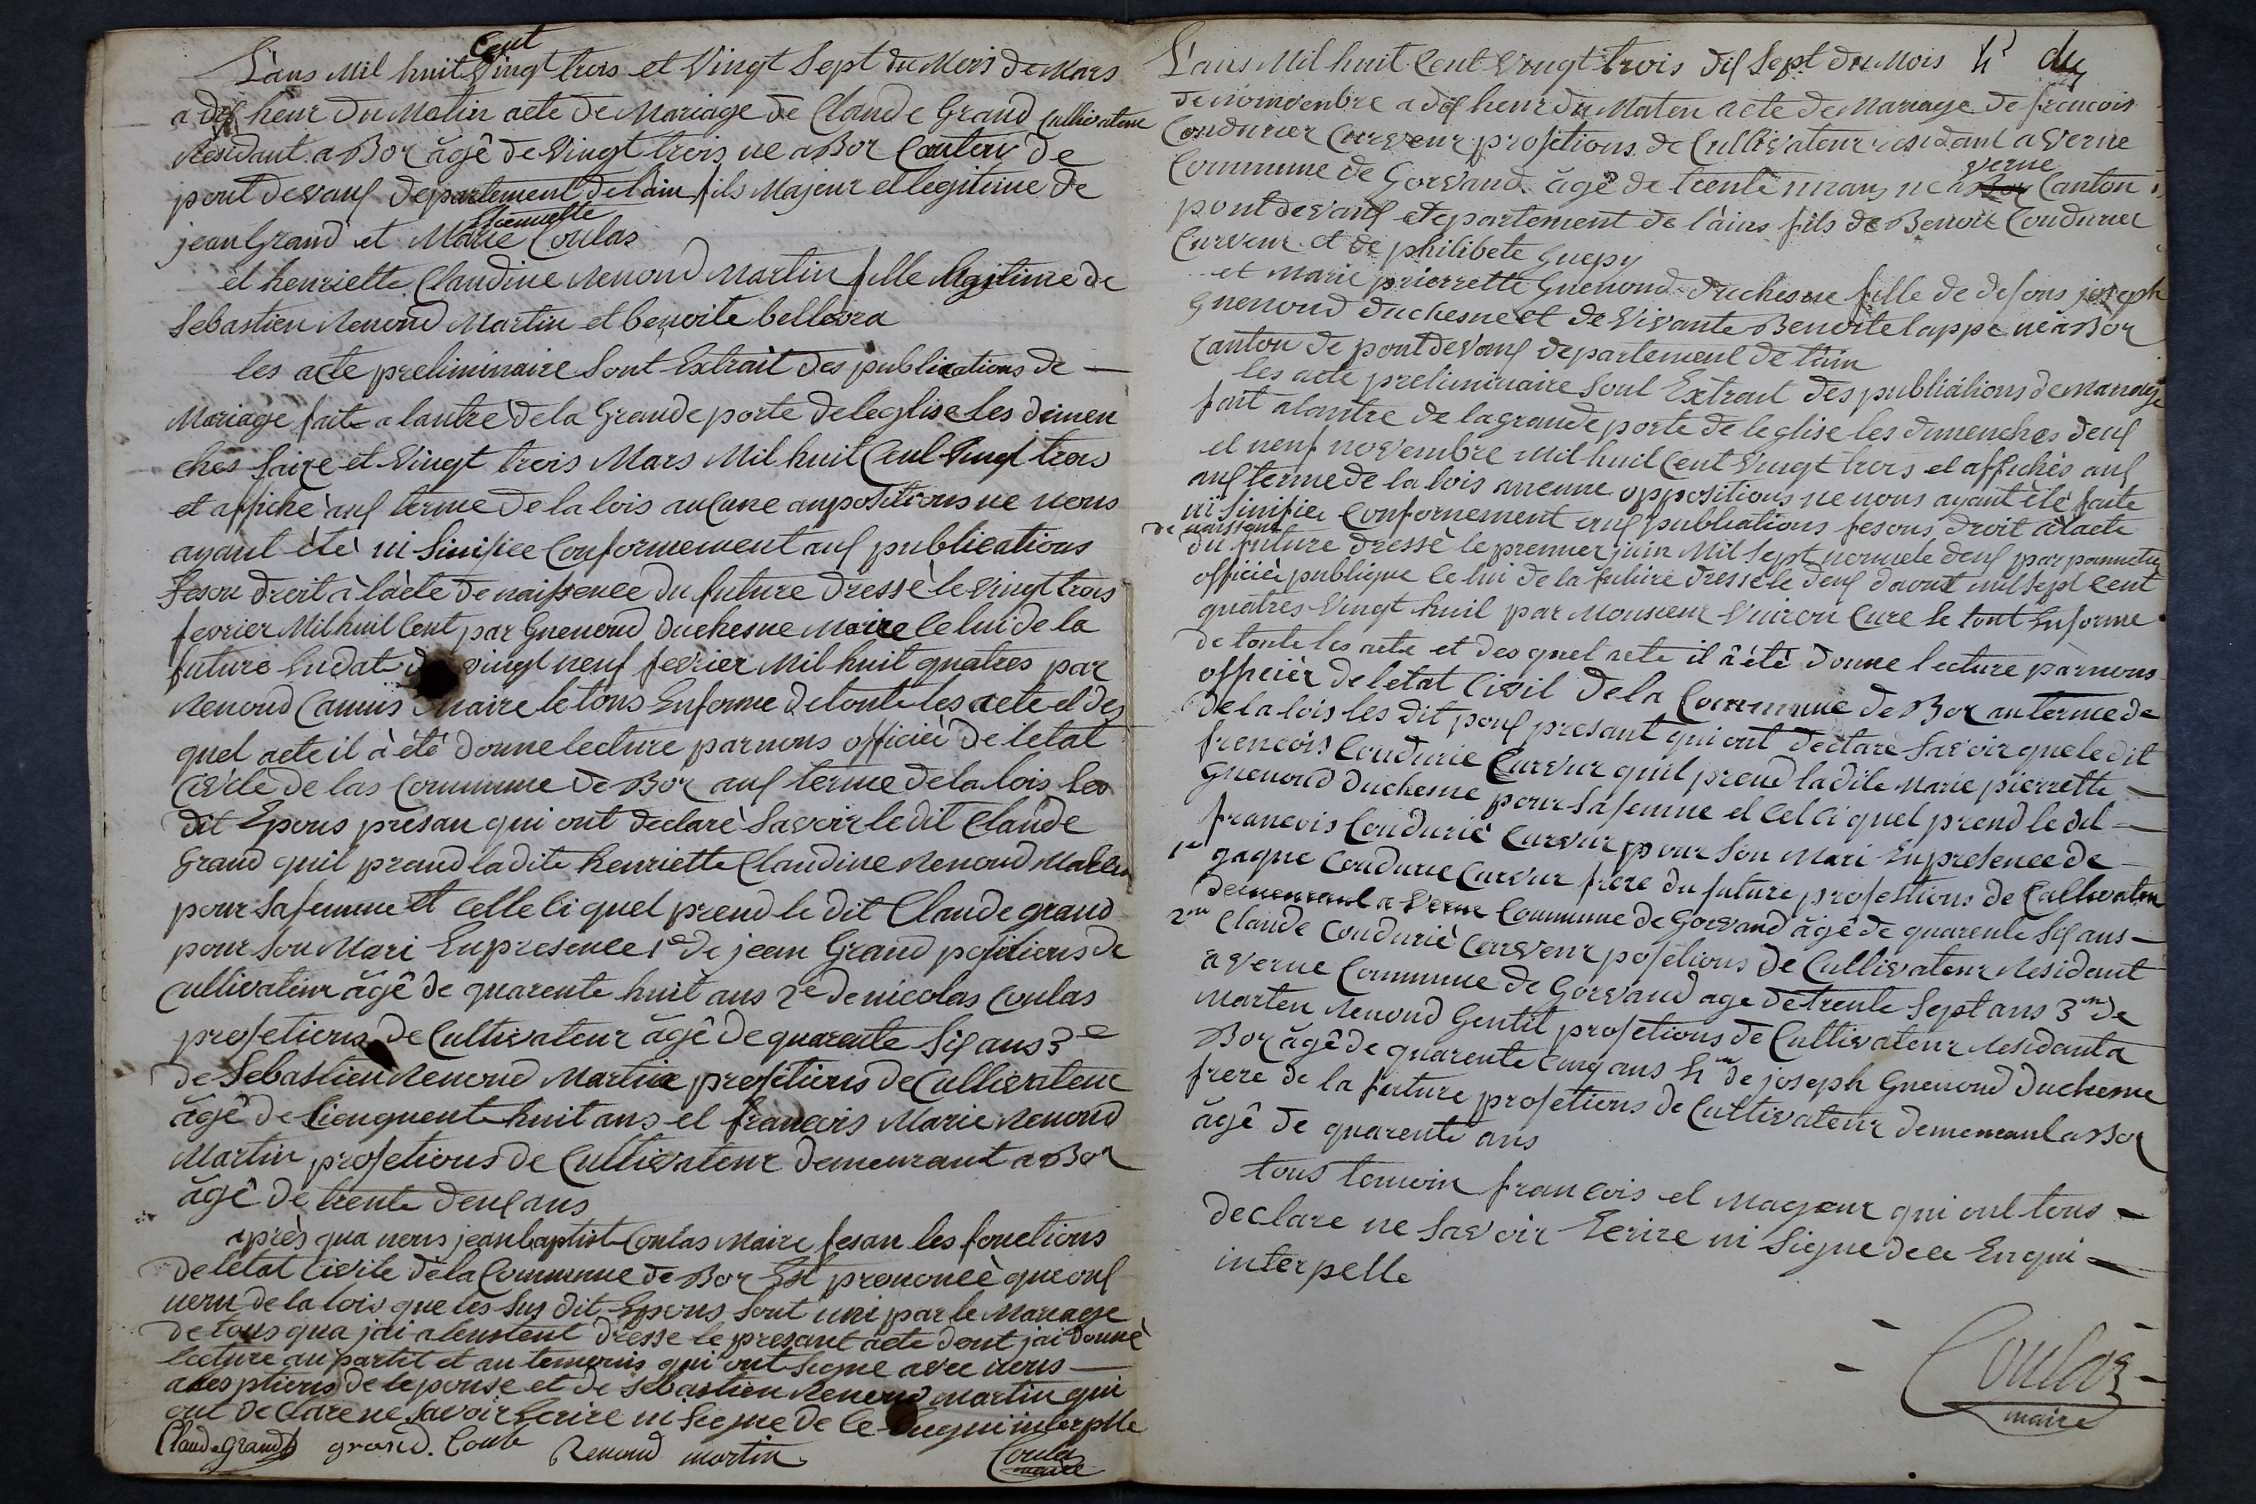 L'ans Mil huit Cent Vingt trois et Vingt Sept du Mois de Mars
a dix heur du Matin acte de Mariage de Claude Grand Cultivateur
Résidant a Boz âgê de Vingt trois ne a Boz Canton de
pont devaux departement de l'ain fils Majeur et legitime de
jean Grand et Marie Jeannette Coulas
et henriette Claudine Renoud Martin fille legitime de
Sebastien Renoud Martin et benoite bellevra
les acte preliminaire Sont Extrait des publications de
Mariage faite a lantré de la Grande porte de leglise les dimen
ches Saize et Vingt trois Mars Mil huit Cent Vingt trois
et affiché aux terme de la lois aucune anpositions ne nous
ayant été ni Sinifiee Conformement aux publications
Feson droit à làcte de naissence du future dressé le vingt trois
fevrier Mil huit Cent par Guenoud duchesne Maire Celui de la
future Endat du vingt neuf fevrier Mil huit quatres par
Renoud Camus Maire le tous Enforme de toute les acte et des
quel acte il à été donne lecture par nous officié de letat
Civile de las Commune de Boz aux terme de la lois les
dit Epous presan qui ont declaré Savoir le dit Claude
Grand quil prand ladite henriette Claudine Renoud Martin
pour Safemme et Celle Ci quel prend le dit Claude grand
pour Son Mari Enpresence 1e de jean Grand pofetions de
Cultivateur âgê de quarente huit ans 2e de nicolas Coulas
profetions de Cultivateur âgê de quarente Six ans 3e
de Sebastien Renoud Martin profetions de Cultivateur
âgê de Cienquente huit ans et francois Marie Renoud
Martin profetions de Cultivateur demeurant a Boz
âgê de trente deux ans
après qua nous jean baptist Coulas Maire fesan les fonctions
de létat Civile déla Commune de Boz Est prenonceè que oux
neru de la lois que les Sus dit Epous Sont uni par le Mariage
de tous qua jai alenstent dresse le presant acte dont jai donné
lecture au partit et au temoins qui ont Signe avec nous
a lesptions de lepouse et de Sebastien Renoud Martin qui
ont declare ne Savoir Ecrire ni Signe de Ce Enqui interplle
Claude Grand grand. Coula Renoud martin Coulas
maire
L'ans Mil huit Cent Vingt trois dix Sept du Mois 4e du
de nomvenbre a dix heur du Maten acte de Mariage de francois
Condurier Curveur profetions de Cultivateur residant a Verne
Commune de Gorvaud âgê de trente un ans ne a verne Canton
pont devaux departement de lains fils de Benoit Condurier
Curveur et de philibete Guepy
et Marie prierrette Guenoud duchesne fille de defons joseph
Guenoud duchesne et de Vivante Benoite lappe né a Boz
Canton de pont devaux departement de lain
les acte preliminaire Sont Extrait des publiations de Mariage
fait a lantre de la grande porte de leglise les dimenches deux
et neuf novembre Mil huit Cent Vingt trois et affichés aux
aux terme de la lois aucune oppositions ne nous ayant été faite
ni Sinifiee Conformement aux publiations fesons droit a lacte
de naissance
du future dressé le premier juin Mil Sept nonente deux par pannetier
officiér publique Celui de la future dressé le deux daoust mil Sept Cent
quatres Vingt huit par Monsieur Vuiron Cure le tout Enforme
de toute les acte et des quel acte il à été donne lecture par nous
officiér de letat Civil de la Commune de Boz au terme de
de la lois les dit poux presant qui ont declare Savoir que le dit
francois Condurie Curveur quil prend la dite Marie pierrette
Guenoud duchesne pour Safemme et Cel Ci quel prend le dit
francois Condurié Curveur pour Son Mari Enpresence de
1e gaque Condurie Curveur frere du future profestions de Cultivateur
demeurant a Verne Commune de Gorvaud âgê de quarente Six ans
2me Claude Condurié Curveur pofetions de Cultivateur Residant
a verne Commune de Gorvaud age de trente Sept ans 3me de
Marten Renoud Gentil profetions de Cultivateur Residant a
Boz âgê de quarente Cinq ans 4me de joseph Guenoud duchesne
frere de la future profetions de Cultivateur demereant a Boz
âgê de quarente ans
tous temoin francois et Mageur qui ont tous
declare ne Savoir Ecrire ni Signe de Ce Enqui
interpelle
Coulas
maire